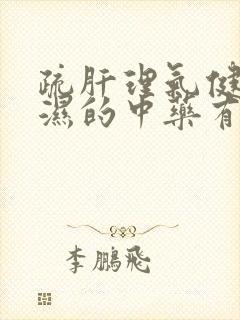 疏肝理气健
濕的中藥有
李鵬飛